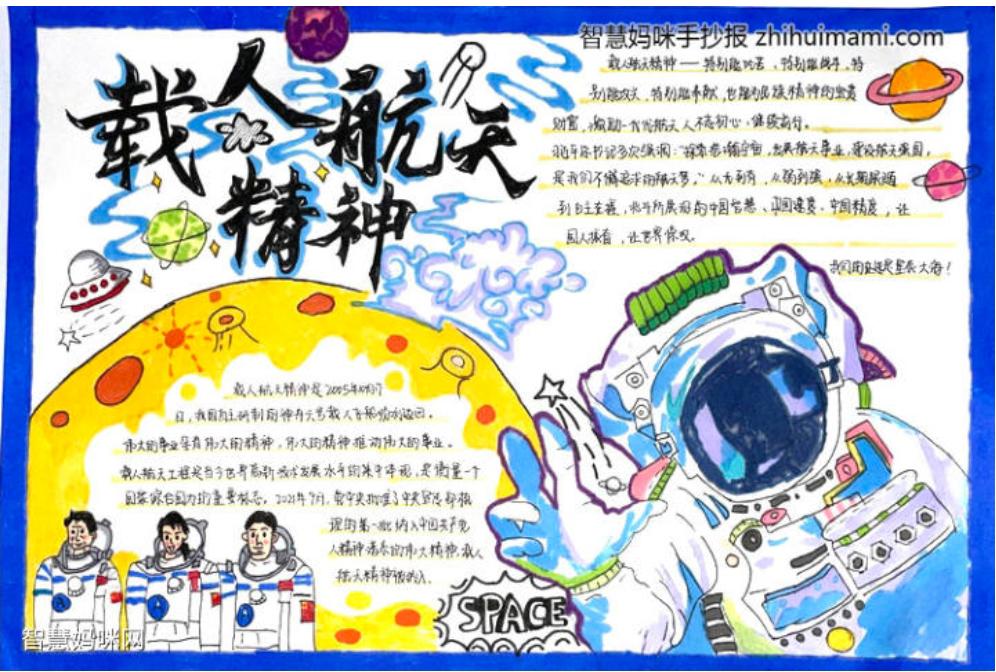 智慧妈咪手抄报 zhihuimami.com
载人航天
精神
载人航天精神——特别能吃苦,特别能战斗,特
别能攻关,特别能奉献,也融为民族精神的宝贵
财富,激励一代代航天人不忘初心、继续前行。
习近平总书记多次强调:"探索浩瀚宇宙,发展航天事业,建设航天强国,
是我们不懈追求的航天梦。"从无到有,从弱到强,从
到自主 中国智慧、中国速度、中国精度,让
国人振奋,让世界惊叹。
我们的征途是星辰大海!
载人航天精神是2005年10月17
日,我国自主研制的神舟六号载人飞船
伟大的事业孕育伟大的精神,伟大的精神推动伟大的事业。
载人航天工程是当今世界高新技术发展水平的集中体现,是衡量一个
国家综合国力的重要标志。2021年9月,党中央批准了中央宣传部梳
理的第一批纳入中国共产党
人精神谱系的伟大精神,载人
航天精神被纳入。
SPACE
智慧妈咪网